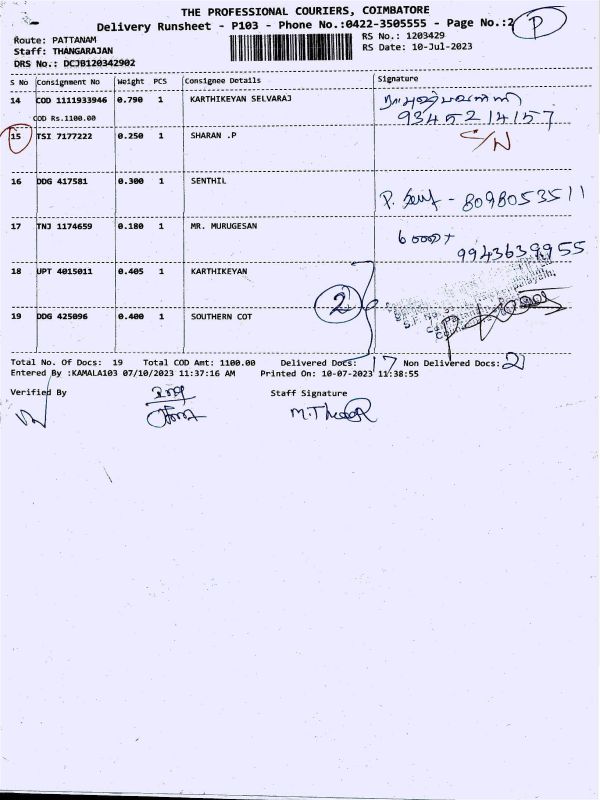 THE PROFESSIONAL COURIERS, COIMBATORE
Delivery Runsheet - P103 - Phone No.:0422-3505555 - Page No.:2 P
Route: PATTANAM
Staff: THANGARAJAN
DRS No.: DCJB120342902
RS No.: 1203429
RS Date: 10-Jul-2023
S No Consignment No Weight PCS Consignee Details Signature
14 COD 1111933946 0.790 1 KARTHIKEYAN SELVARAJ
COD Rs.1100.00 9345214157
15 TSI 7177222 0.250 1 SHARAN .P C/N
16 DDG 417581 0.300 1 SENTHIL
P. - 8098053511
17 TNJ 1174659 0.180 1 MR. MURUGESAN
9943639955
18 UPT 4015011 0.405 1 KARTHIKEYAN
2
19 DDG 425096 0.400 1 SOUTHERN COT
Total No. Of Docs: 19 Total COD Amt: 1100.00 Delivered Docs: 17 Non Delivered Docs: 2
Entered By :KAMALA103 07/10/2023 11:37:16 AM Printed On: 10-07-2023 11:38:55
Verified By Staff Signature